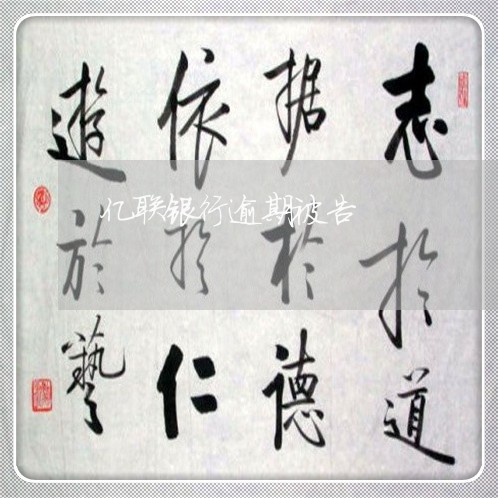 志於道
据於德
依於仁
遊於藝
亿联银行逾期被告